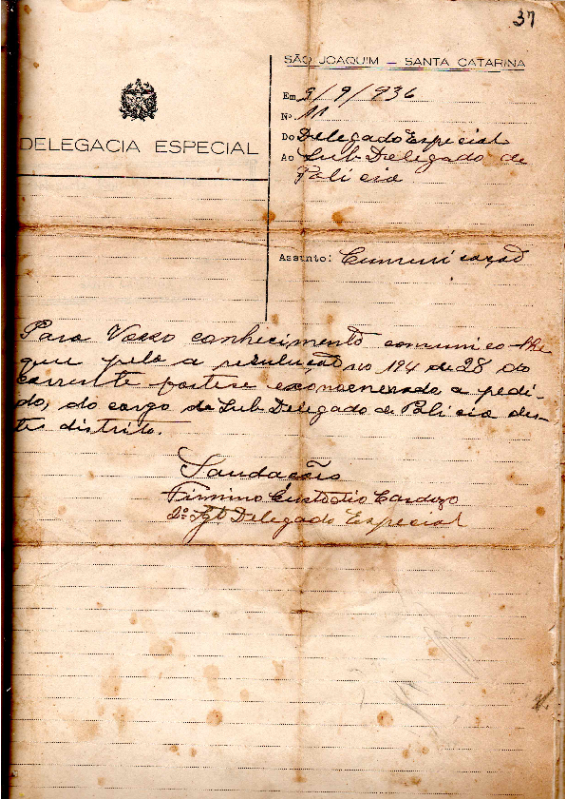 37
SÃO JOAQUIM — SANTA CATARINA
DELEGACIA ESPECIAL
Em 9/9/936
Nº 11
Do Delegado Especial
Ao Sub Delegado de
Policia
Assunto: Cumunicação
Para Vosso conhecimento comunico-lhe
que pela a resulução no 194 de 28 do
corrente fostese exoenerado a pedi-
do, do cargo de Sub Delegado de Policia des-
te distrito.
Saudacões
Firmino Custodio Cardozo
2º Sgto Delegado Especial